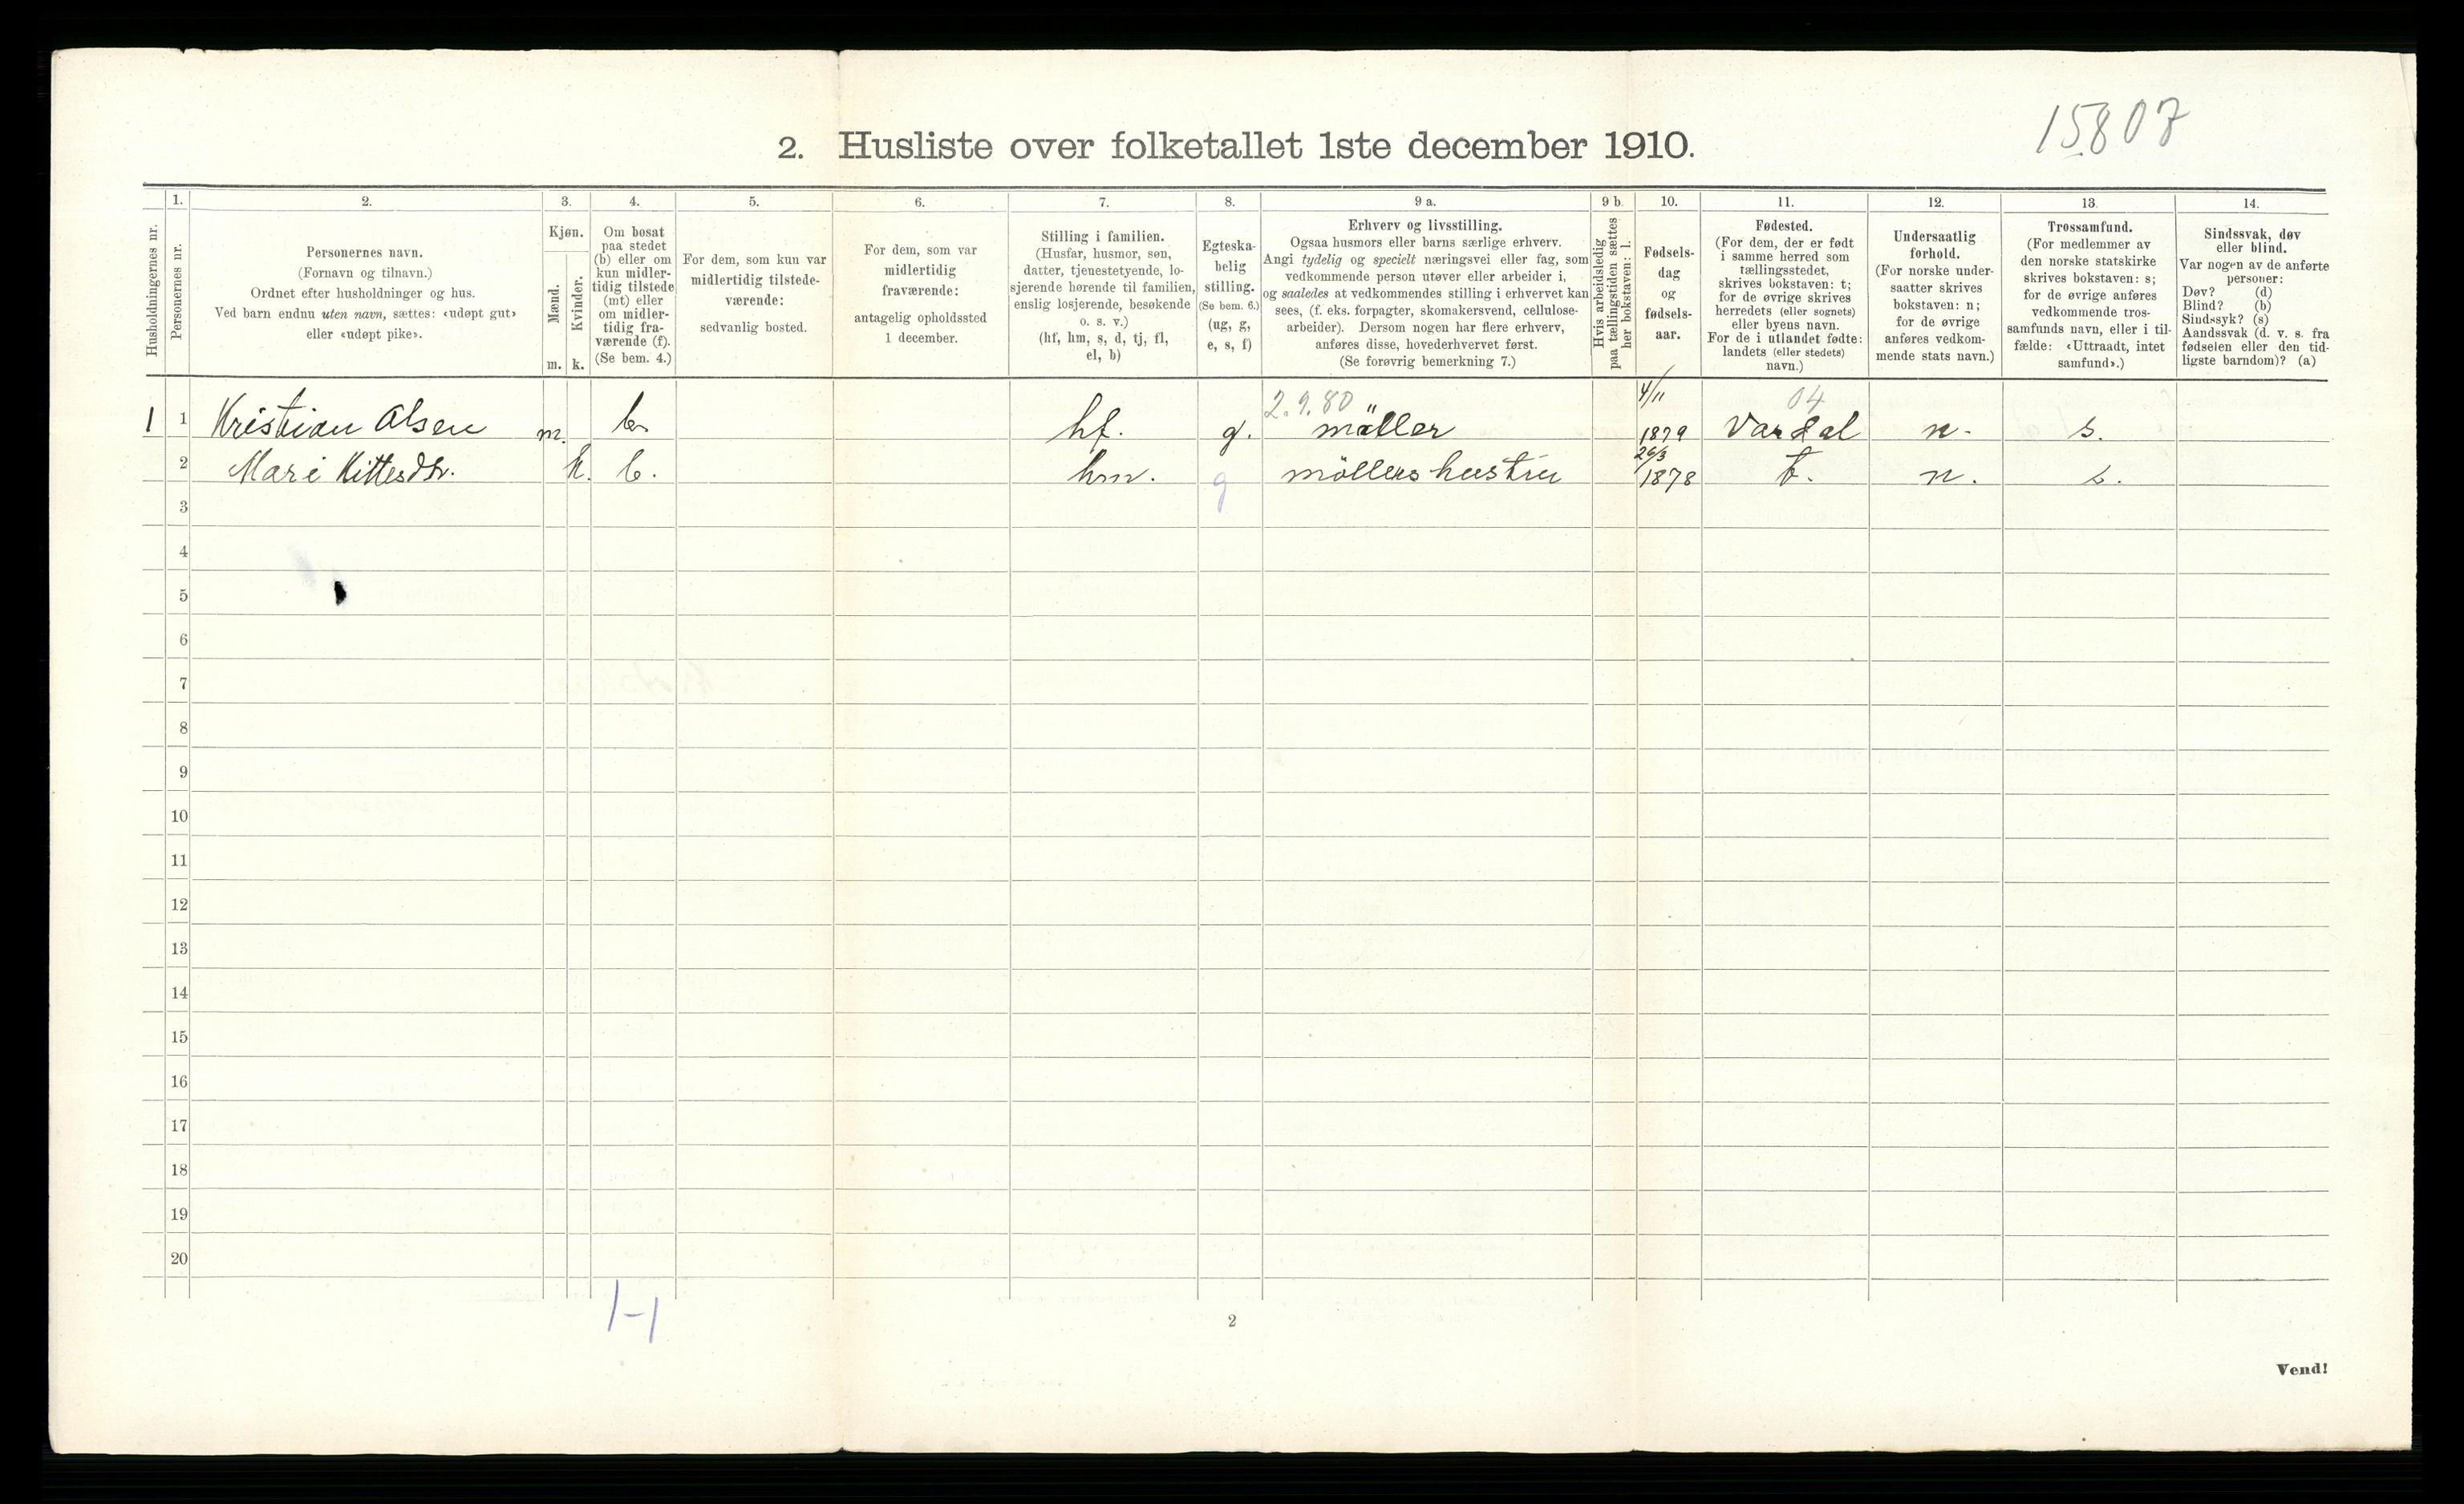 15807
2. Husliste over folketallet 1ste december 1910.
Husholdningernes nr.
1.
Personernes nr.
2.
Personernes navn.
(Fornavn og tilnavn.)
Ordnet efter husholdninger og hus.
Ved barn endnu uten navn, sættes: «udøpt gut»
eller «udøpt pike».
3.
Kjøn.
Mænd.
Kvinder.
m. k.
4.
Om bosat
paa stedet
(b) eller om
kun midler-
tidig tilstede
(mt) eller
om midler-
tidig fra-
værende (f).
(Se bem. 4.)
5.
For dem, som kun var
midlertidig tilstede-
værende:
sedvanlig bosted.
6.
For dem, som var
midlertidig
fraværende:
antagelig opholdssted
1 december.
7.
Stilling i familien.
(Husfar, husmor, søn,
datter, tjenestetyende, lo-
sjerende hørende til familien,
enslig losjerende, besøkende
o. s. v.)
(hf, hm, s, d, tj, fl,
el, b)
8.
Egteska-
belig
stilling.
(Se bem. 6.)
(ug, g,
e, s, f)
9 a.
Erhverv og livsstilling.
Ogsaa husmors eller barns særlige erhverv.
Angi tydelig og specielt næringsvei eller fag, som
vedkommende person utøver eller arbeider i,
og saaledes at vedkommendes stilling i erhvervet kan
sees, (f. eks. forpagter, skomakersvend, cellulose-
arbeider). Dersom nogen har flere erhverv,
anføres disse, hovederhvervet først.
(Se forøvrig bemerkning 7.)
9 b.
Hvis arbeidsledig
paa tællingstiden sættes
her bokstaven: l.
10.
Fødsels-
dag
og
fødsels-
aar.
11.
Fødested.
(For dem, der er født
i samme herred som
tællingsstedet,
skrives bokstaven: t;
for de øvrige skrives
herredets (eller sognets)
eller byens navn.
For de i utlandet fødte:
landets (eller stedets)
navn.)
12.
Undersaatlig
forhold.
(For norske under-
saatter skrives
bokstaven: n;
for de øvrige
anføres vedkom-
mende stats navn.)
13.
Trossamfund.
(For medlemmer av
den norske statskirke
skrives bokstaven: s;
for de øvrige anføres
vedkommende tros-
samfunds navn, eller i til-
fælde: «Uttraadt, intet
samfund».)
14.
Sindssvak, døv
eller blind.
Var nogen av de anførte
personer:
Døv? (d)
Blind? (b)
Sindssyk? (s)
Aandssvak (d. v. s. fra
fødselen eller den tid-
ligste barndom)? (a)
2.9.80 4/11 04
1 1 Kristian Olsen m. b. hf. g. möller 1879 Vardal n. s.
26/3
2 Mari k. b. hm. g möllers hustru 1878 t. n. s.
3
4
5
6
7
8
9
10
11
12
13
14
15
16
17
18
19
20
1-1
2
Vend!